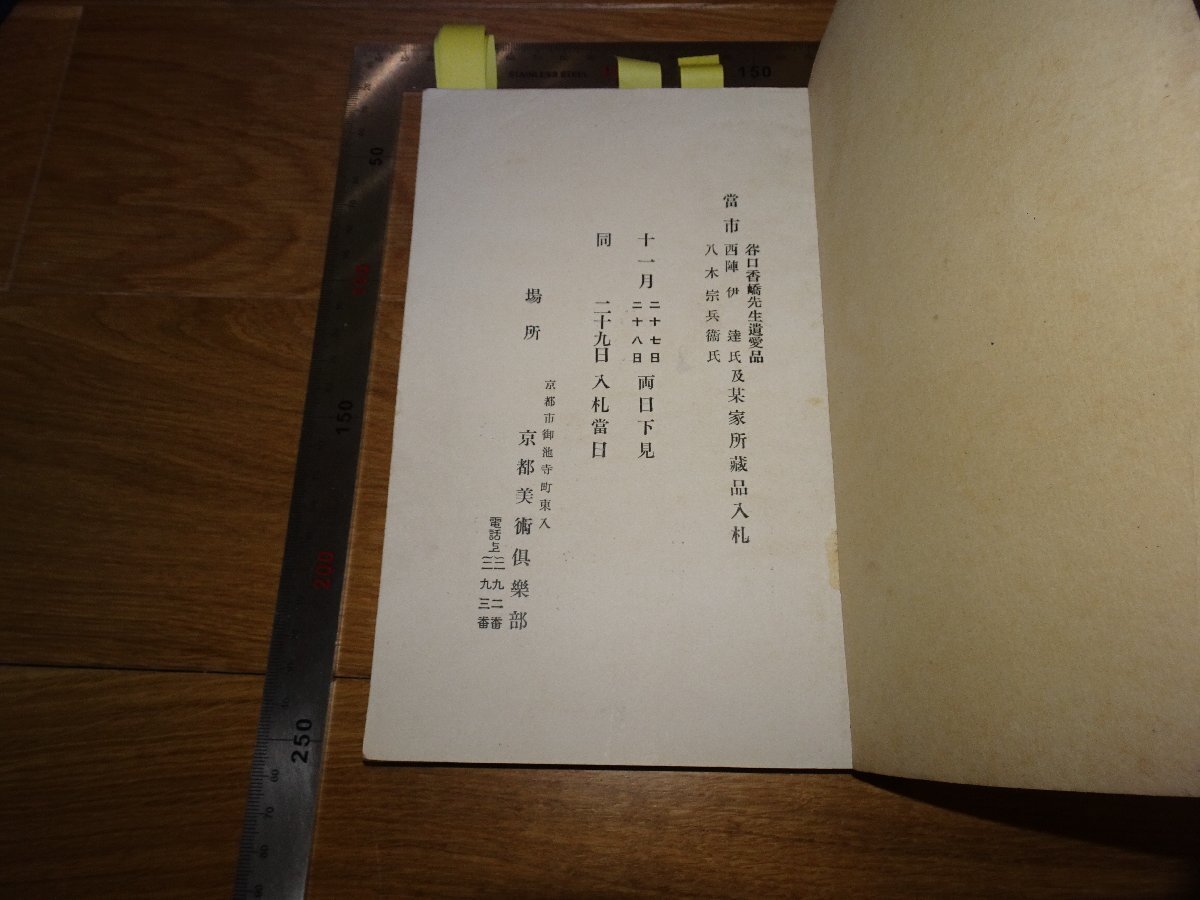 谷口香嶠先生遺愛品
當市 西陣 伊達氏 及某家所藏品入札
八木宗兵衞氏
十一月 二十七日 両日下見
二十八日
同 二十九日 入札當日
京都市御池寺町東入
場所 京都美術倶樂部
電話上 三九二番
三九三番
STAINLESS STEEL
150
50
100
150
200
250